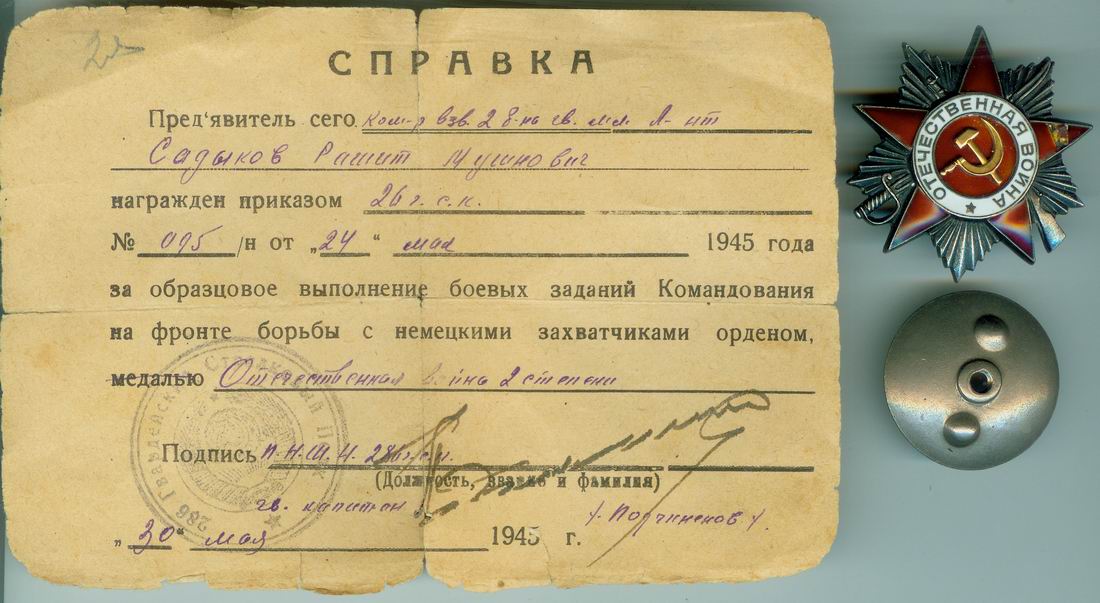 СПРАВКА
Пред'явитель сего ком-р взв. гв. мл. л-нт
Садыков Рашит
награжден приказом 26 г. с. к.
№ 095/н от „24“ мая 1945 года
за образцовое выполнение боевых заданий Командования
на фронте борьбы с немецкими захватчиками орденом,
медалью Отечественная война 2 степени
Подпись П.Н.Ш.
(Должность, звание и фамилия)
гв. капитан
„30“ мая 1945 г.
286 Гвардейский Стрелковый
ОТЕЧЕСТВЕННАЯ ВОЙНА